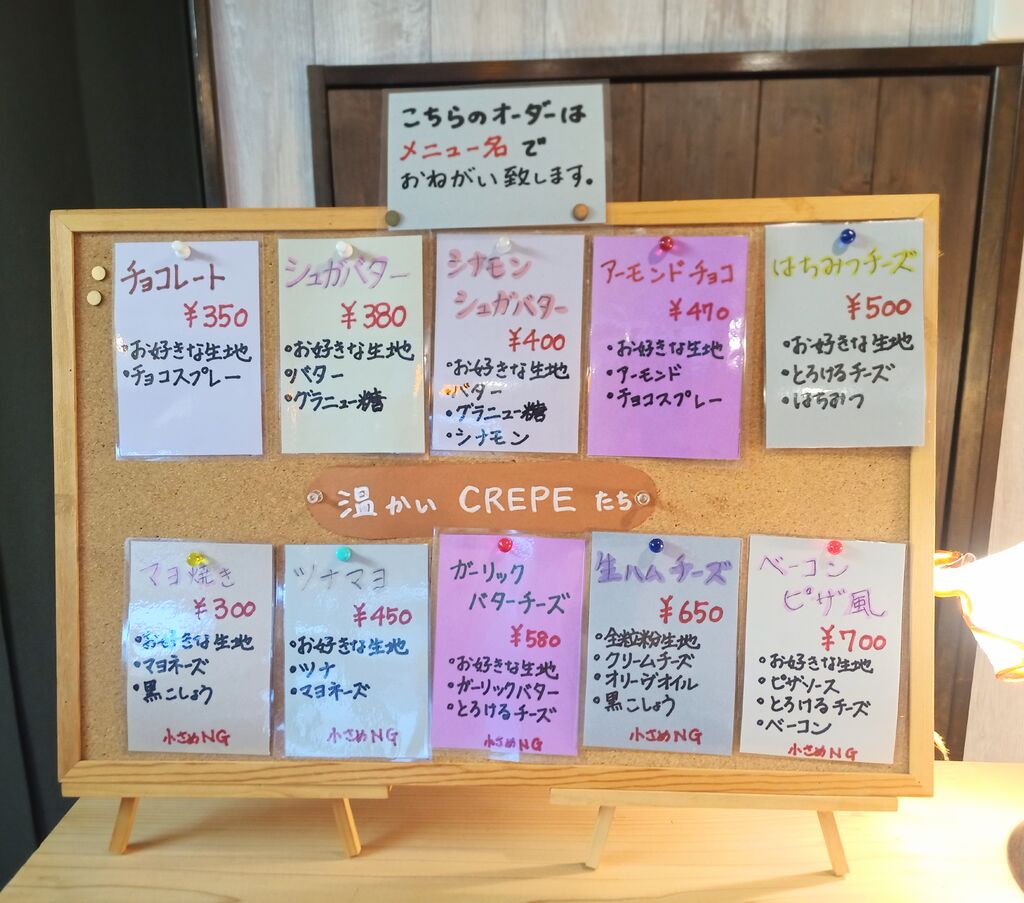 こちらのオーダーは
メニュー名で
おねがい致します。
チョコレート
¥350
・お好きな生地
・チョコスプレー
シュガバター
¥380
・お好きな生地
・バター
・グラニュー糖
シナモン
シュガバター
¥400
・お好きな生地
・バター
・グラニュー糖
・シナモン
アーモンドチョコ
¥470
・お好きな生地
・アーモンド
・チョコスプレー
はちみつチーズ
¥500
・お好きな生地
・とろけるチーズ
・はちみつ
温かい CREPE たち
マヨ焼き
¥300
・お好きな生地
・マヨネーズ
・黒こしょう
小さめNG
ツナマヨ
¥450
・お好きな生地
・ツナ
・マヨネーズ
小さめNG
ガーリック
バターチーズ
¥580
・お好きな生地
・ガーリックバター
・とろけるチーズ
小さめNG
生ハムチーズ
¥650
・全粒粉生地
・クリームチーズ
・オリーヴオイル
・黒こしょう
小さめNG
ベーコン
ピザ風
¥700
・お好きな生地
・ピザソース
・とろけるチーズ
・ベーコン
小さめNG